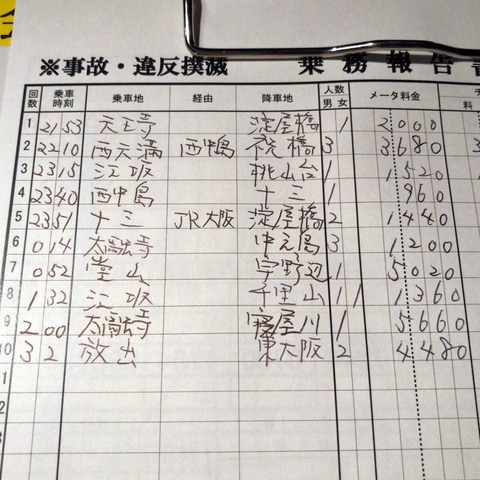 ※事故・違反撲滅 乗務報告書
回数 乗車時刻 乗車地 経由 降車地 人数 男 女 メータ料金 料
1 21 53 天王寺 淀屋橋 1 2000
2 22 10 西天満 西中島 祝橋 3 3680
3 23 15 江坂 桃山台 1 1520
4 23 40 西中島 十三 1 960
5 23 51 十三 JR大阪 淀屋橋 2 1440
6 0 14 太融寺 中之島 3 1200
7 0 52 堂山 宇野辺 1 5020
8 1 32 江坂 千里山 1 1 1360
9 2 00 太融寺 寝屋川 1 5660
10 3 2 放出 東大阪 2 4480